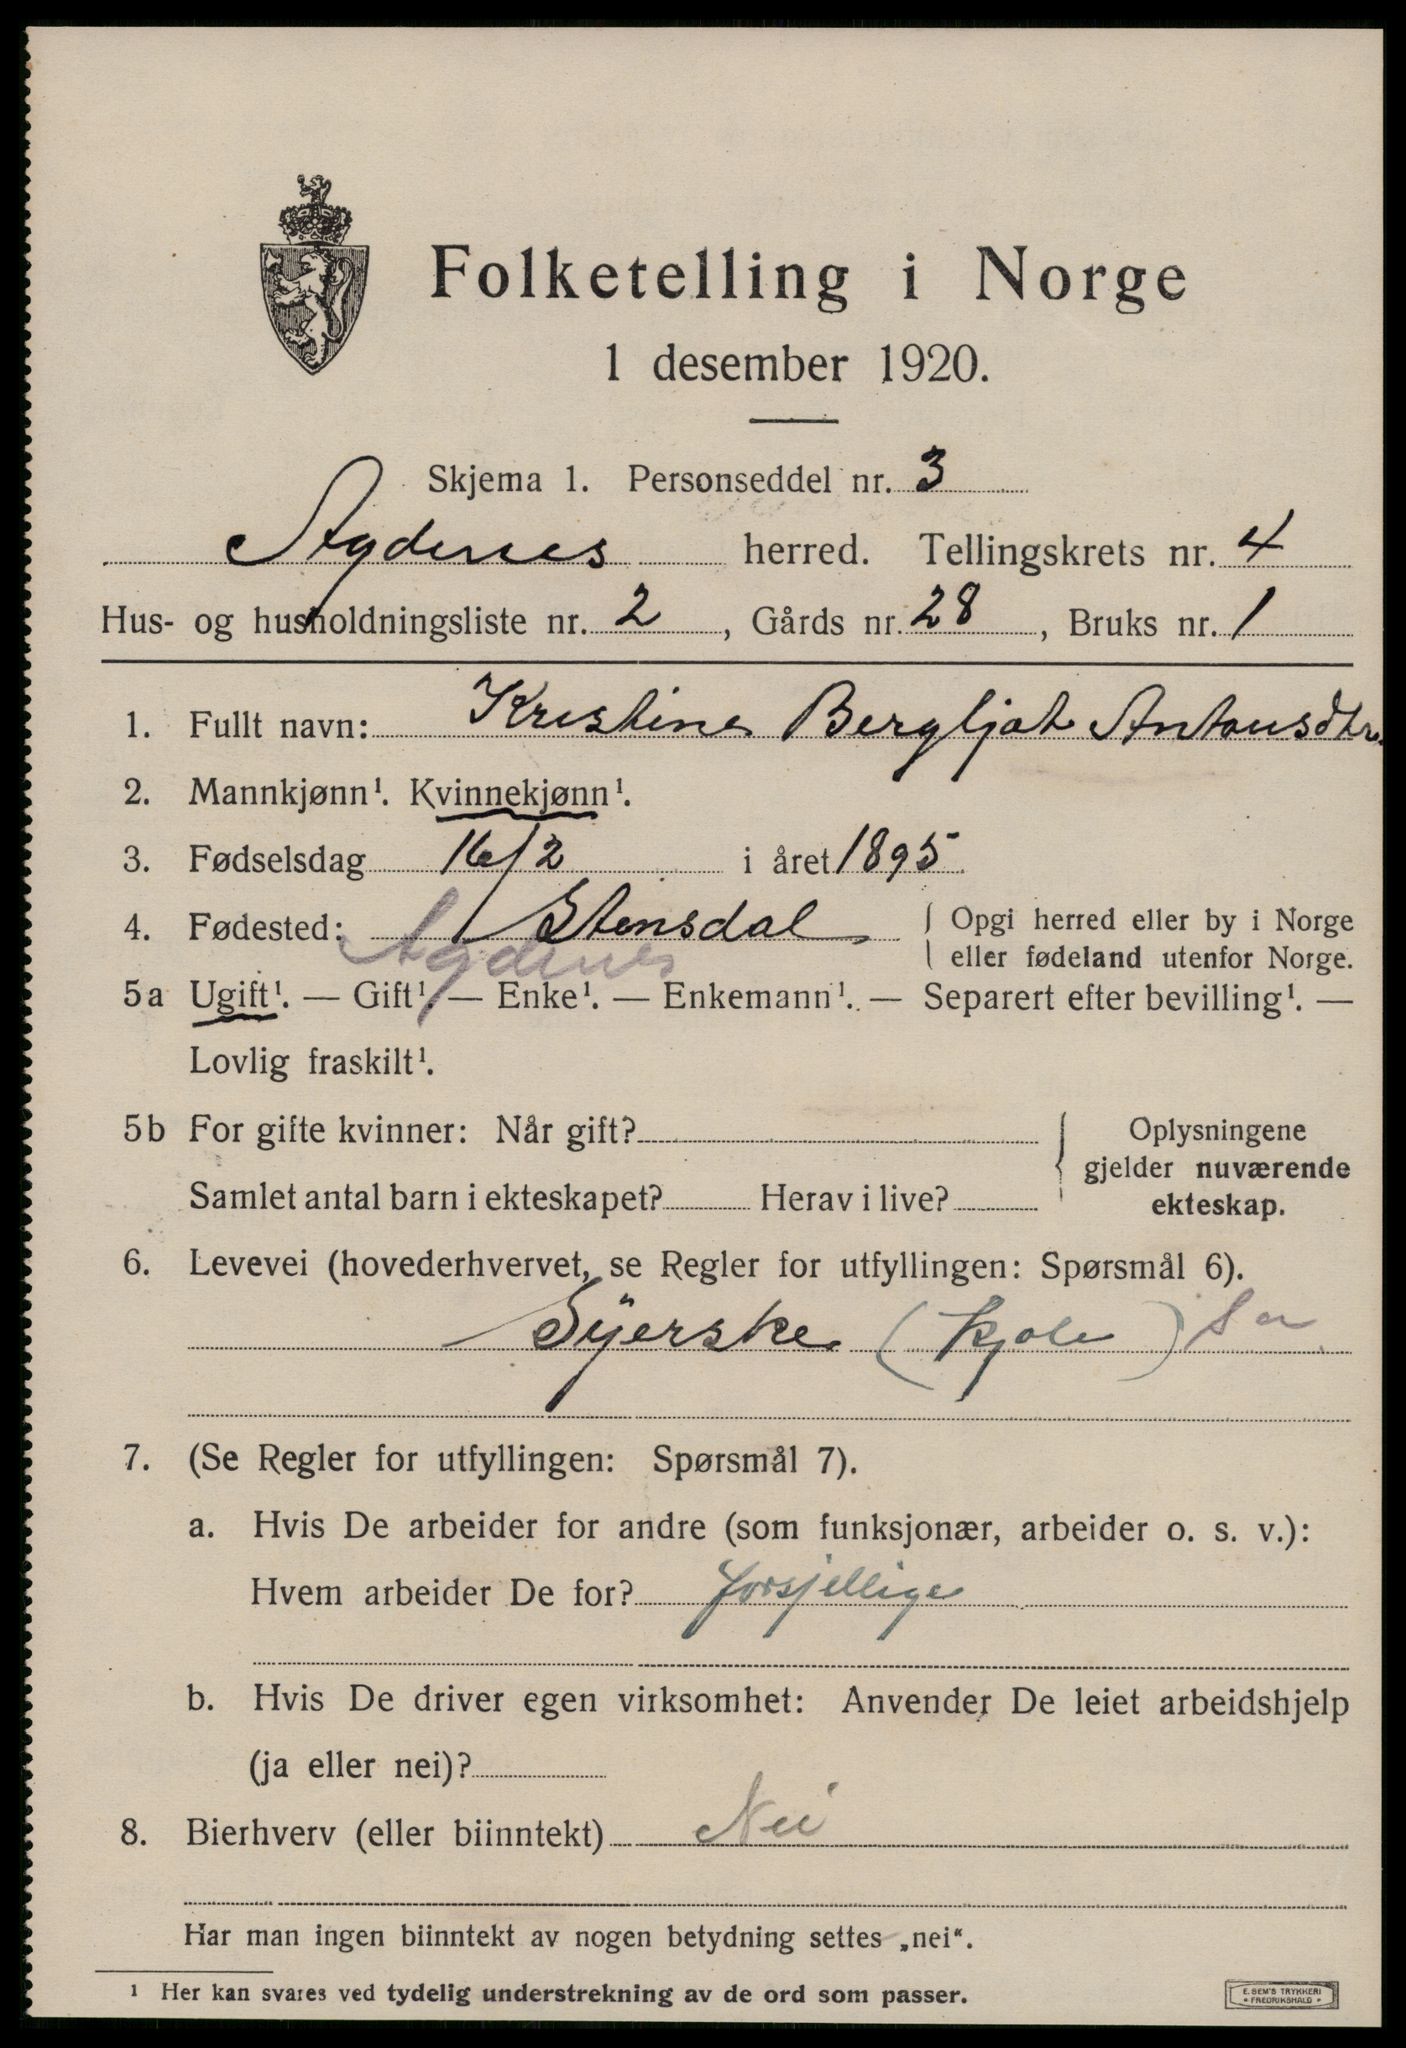 Folketelling i Norge
1 desember 1920.
Skjema 1. Personseddel nr. 3
Agdenes herred. Tellingskrets nr. 4
Hus- og husholdningsliste nr. 2, Gårds nr. 28, Bruks nr. 1
1. Fullt navn: Kristine Bergljot Antonsdtr.
2. Mannkjønn¹. Kvinnekjønn¹.
3. Fødselsdag 16/2 i året 1895
4. Fødested: Stensdal { Opgi herred eller by i Norge
Agdenes { eller fødeland utenfor Norge.
5a Ugift¹. — Gift¹ — Enke¹. — Enkemann¹. — Separert efter bevilling¹. —
Lovlig fraskilt¹.
5b For gifte kvinner: Når gift? } Oplysningene
gjelder nuværende
Samlet antal barn i ekteskapet? Herav i live? ekteskap.
6. Levevei (hovederhvervet, se Regler for utfyllingen: Spørsmål 6).
Syerske (kjole)
7. (Se Regler for utfyllingen: Spørsmål 7).
a. Hvis De arbeider for andre (som funksjonær, arbeider o. s. v.):
Hvem arbeider De for? forsjellige
b. Hvis De driver egen virksomhet: Anvender De leiet arbeidshjelp
(ja eller nei)?
8. Bierhverv (eller biinntekt) Nei
Har man ingen biinntekt av nogen betydning settes „nei".
¹ Her kan svares ved tydelig understrekning av de ord som passer.
E. SEM'S TRYKKERI
• FREDRIKSHALD •